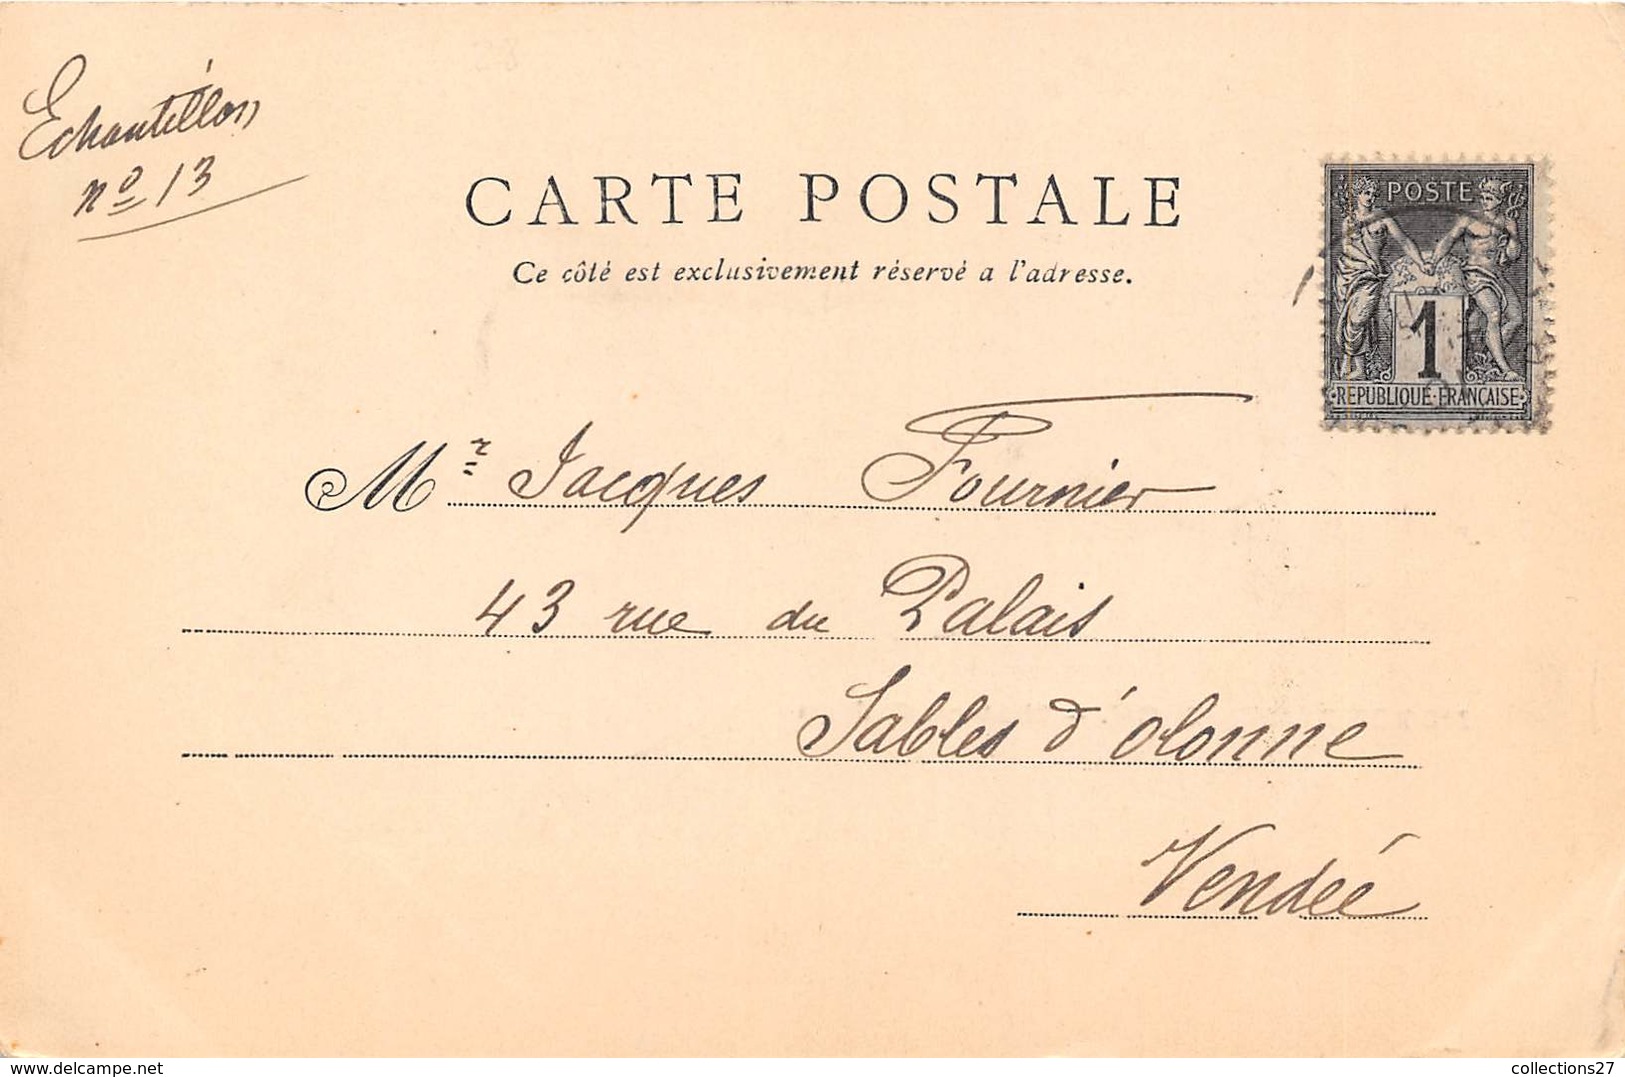 Echantillon
nº 13
CARTE POSTALE
Ce côté est exclusivement réservé a l'adresse.
POSTE
1
REPUBLIQUE FRANÇAISE
Mr Jacques Fournier
43 rue du Palais
Sables d'olonne
Vendée
www.delcampe.net
collections27